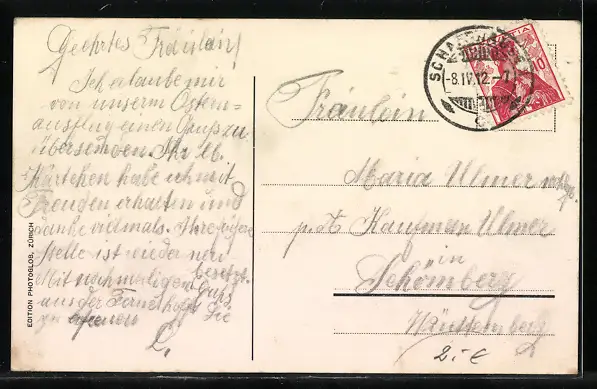 Geehrtes Fräulein!
Ich erlaube mir
von unserm Oster=
ausflug einen Gruß zu
übersenden. Ihr lb.
Kärtchen habe ich mit
Freuden erhalten und
danke vielmals. Ihre
stelle ist wieder
besetzt.
Mit nochmaligen Gruß
aus der Ferne
zu Sie
L.
EDITION PHOTOGLOB, ZÜRICH
SCHAFFHAUSEN
-8.IV.12.-7
HELVETIA
10
Fräulein
Maria Ulmer
p. A Kaufman Ulmer
in
Schömberg
Württemberg
2.- €